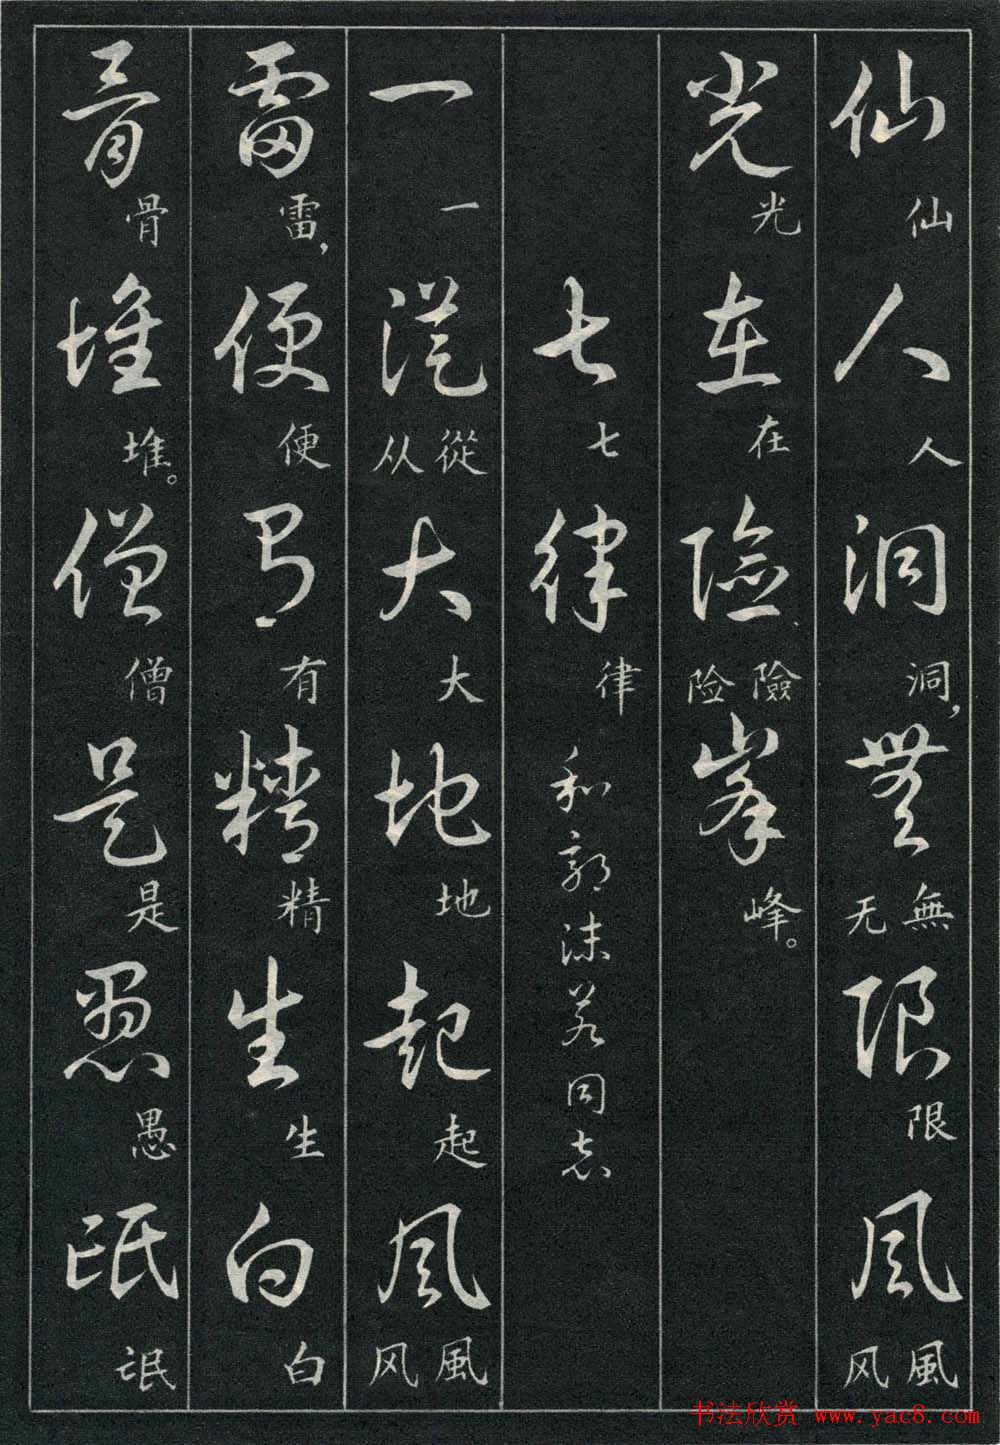 仙人洞無限風
仙人洞，無无限風风
光在險峯
光在險险峰。
七律和郭沫若同志
七律
一從大地起風
一從从大地起風风
雷便有精生白
雷，便有精生白
骨堆僧是愚氓
骨堆。僧是愚氓
书法欣赏 www.yac8.com